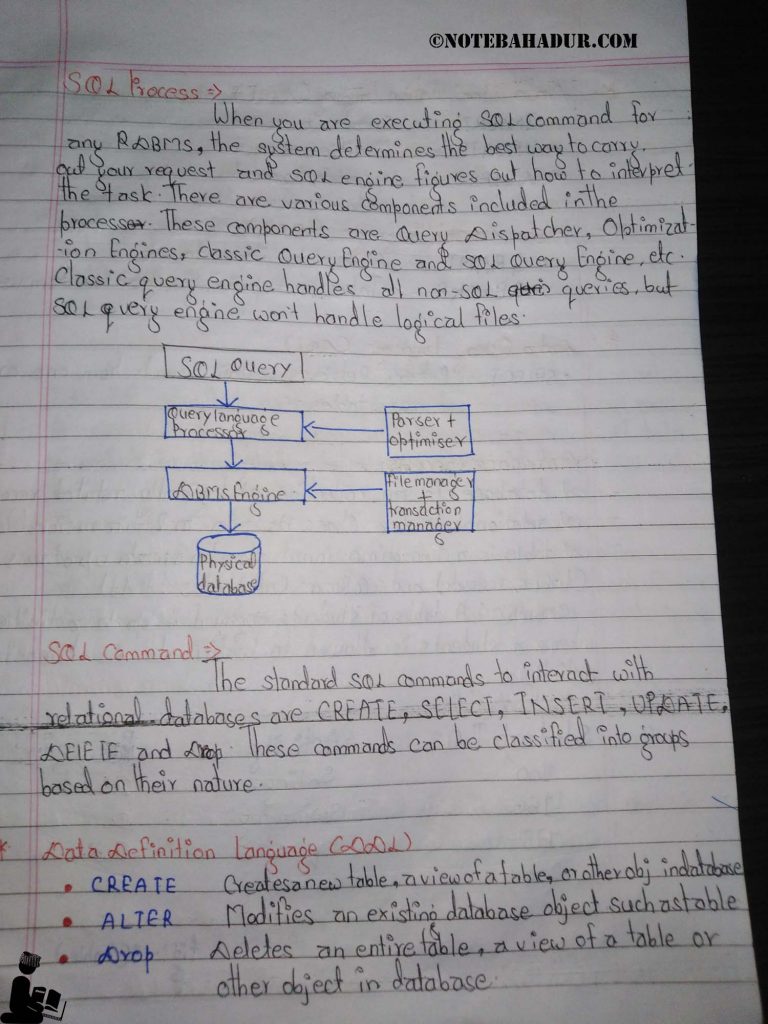 ©NOTEBAHADUR.COM
SQL Process ⇒
When you are executing SQL command for
any RDBMS, the system determines the best way to carry
out your request and SQL engine figures out how to interpret
the task. There are various components included in the
process. These components are Query Dispatcher, Optimizat-
-ion Engines, Classic Query Engine and SQL Query Engine, etc.
Classic query engine handles all non-SQL queries, but
SQL query engine won't handle logical files.
SQL Query
Query language
Processor
Parser +
Optimiser
DBMS Engine
File manager
+
transaction
manager
Physical
database
SQL Command ⇒
The standard SQL commands to interact with
relational databases are CREATE, SELECT, INSERT, UPDATE,
DElETE and Drop. These commands can be classified into groups
based on their nature.
* Data Definition Language (DDL)
• CREATE Creates a new table, a view of a table, or other obj in database
• ALTER Modifies an existing database object such as table
• Drop Deletes an entire table, a view of a table or
other object in database.